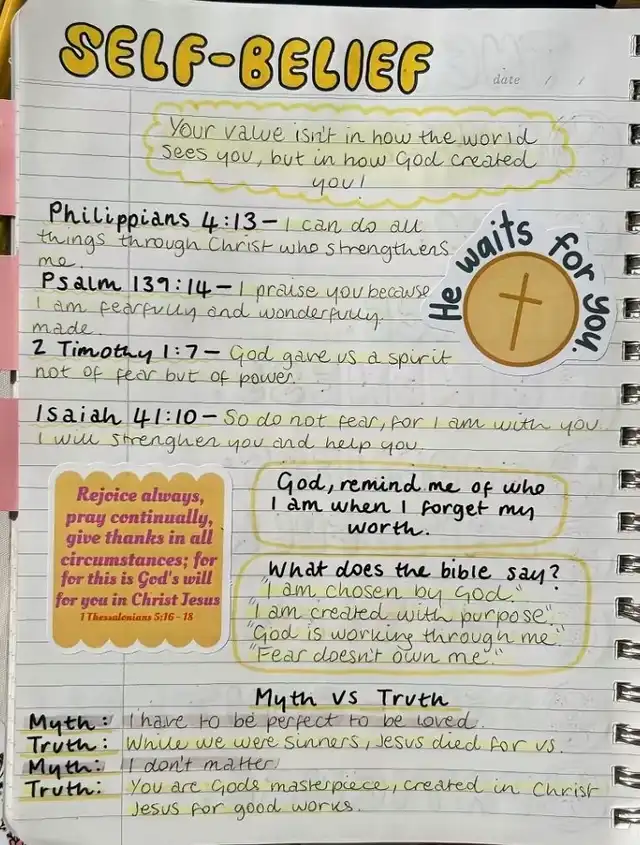 SELF-BELIEF
date / /
Your value isn't in how the world
sees you, but in how God created
you!
Philippians 4:13 – I can do all
things through Christ who strengthens
me.
Psalm 139:14 – I praise you because
I am fearfully and wonderfully
made.
2 Timothy 1:7 – God gave us a spirit
not of fear but of power.
He waits for you.
Isaiah 41:10 – So do not fear, for I am with you.
I will strenghen you and help you.
Rejoice always,
pray continually,
give thanks in all
circumstances; for
for this is God's will
for you in Christ Jesus
1 Thessalonians 5:16 - 18
God, remind me of who
I am when I forget my
worth.
What does the bible say?
"I am chosen by God."
"I am created with purpose"
"God is working through me."
"Fear doesn't own me."
Myth VS Truth
Myth: I have to be perfect to be loved.
Truth: While we were sinners, Jesus died for us.
Myth: I don't matter
Truth: You are Gods masterpiece, created in Christ
Jesus for good works.